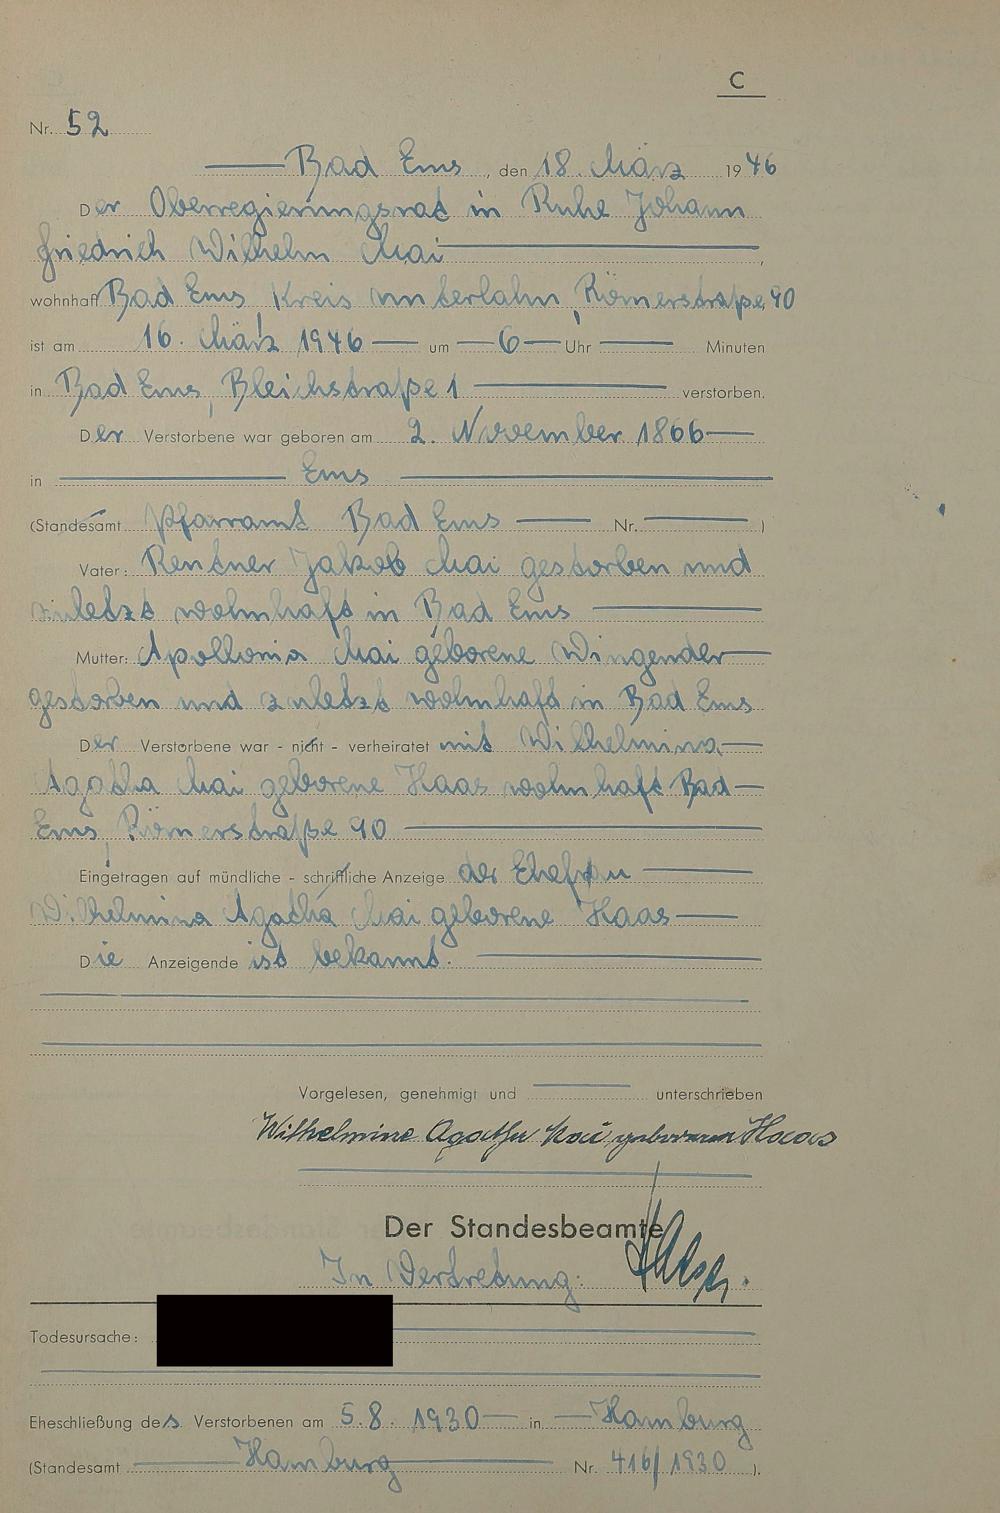 C
Nr. 52
Bad Ems, den 18. März 1946
Der Oberregierungsrat in Ruhe Johann
Friedrich Wilhelm Mai,
wohnhaft Bad Ems, Kreis Unterlahn, Römerstraße 90
ist am 16. März 1946 um 6 Uhr Minuten
in Bad Ems, Bleichstraße 1 verstorben.
Der Verstorbene war geboren am 2. November 1866
in Ems
(Standesamt Pfarramt Bad Ems Nr. )
Vater: Rentner Jakob Mai gestorben und
zuletzt wohnhaft in Bad Ems
Mutter: Apollonia Mai geborene Wingender
gestorben und zuletzt wohnhaft in Bad Ems
Der Verstorbene war - nicht - verheiratet mit Wilhelmina
Agatha Mai geborene Haas wohnhaft Bad
Ems, Römerstraße 90
Eingetragen auf mündliche - schriftliche Anzeige der Ehefrau
Wilhelmina Agatha Mai geborene Haas
Die Anzeigende ist bekannt.
Vorgelesen, genehmigt und unterschrieben
Wilhelmine Agathe Mai geborene Haas
Der Standesbeamte
In Vertretung:
Todesursache:
Eheschließung des Verstorbenen am 5.8.1930 in Hamburg
(Standesamt Hamburg Nr. 416/1930 ).